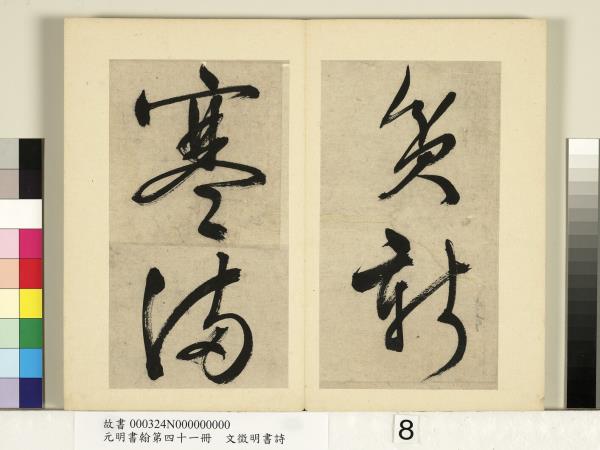 負新
寒滿
故書 000324N000000000
元明書翰第四十一冊　文徵明書詩
8